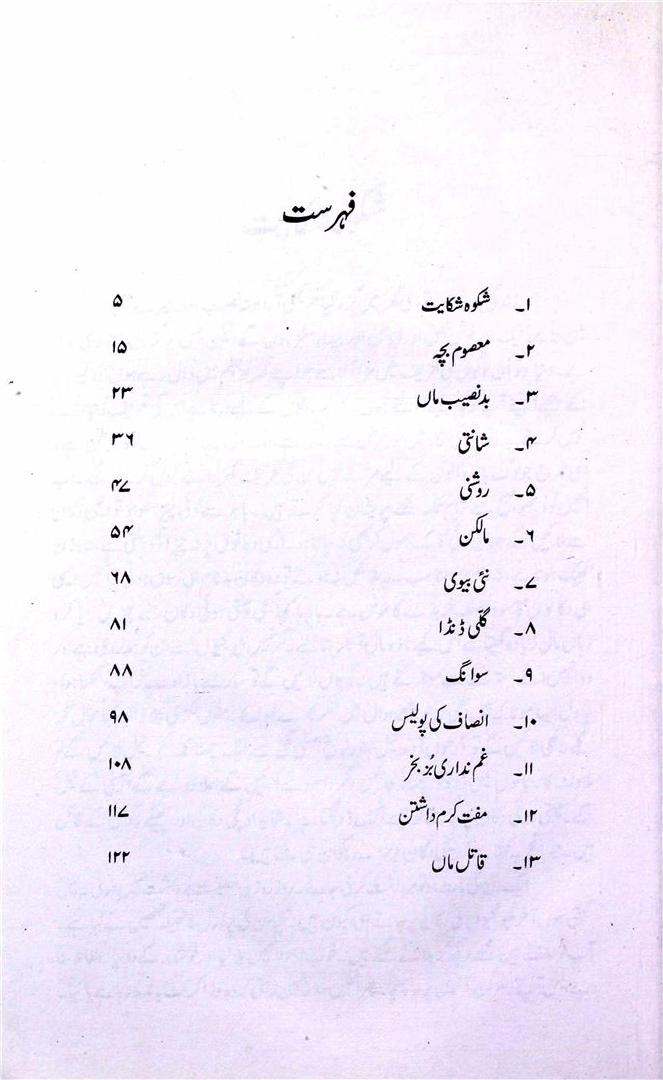 فہرست
۱۔ شکوہ شکایت ۵
۲۔ معصوم بچہ ۱۵
۳۔ بدنصیب ماں ۲۳
۴۔ شانتی ۳۶
۵۔ روشنی ۴۷
۶۔ مالکن ۵۴
۷۔ نئی بیوی ۶۸
۸۔ گلّی ڈنڈا ۸۱
۹۔ سوانگ ۸۸
۱۰۔ انصاف کی پولیس ۹۸
۱۱۔ غم نداری بُز بخر ۱۰۸
۱۲۔ مفت کرم داشتن ۱۱۷
۱۳۔ قاتل ماں ۱۲۲